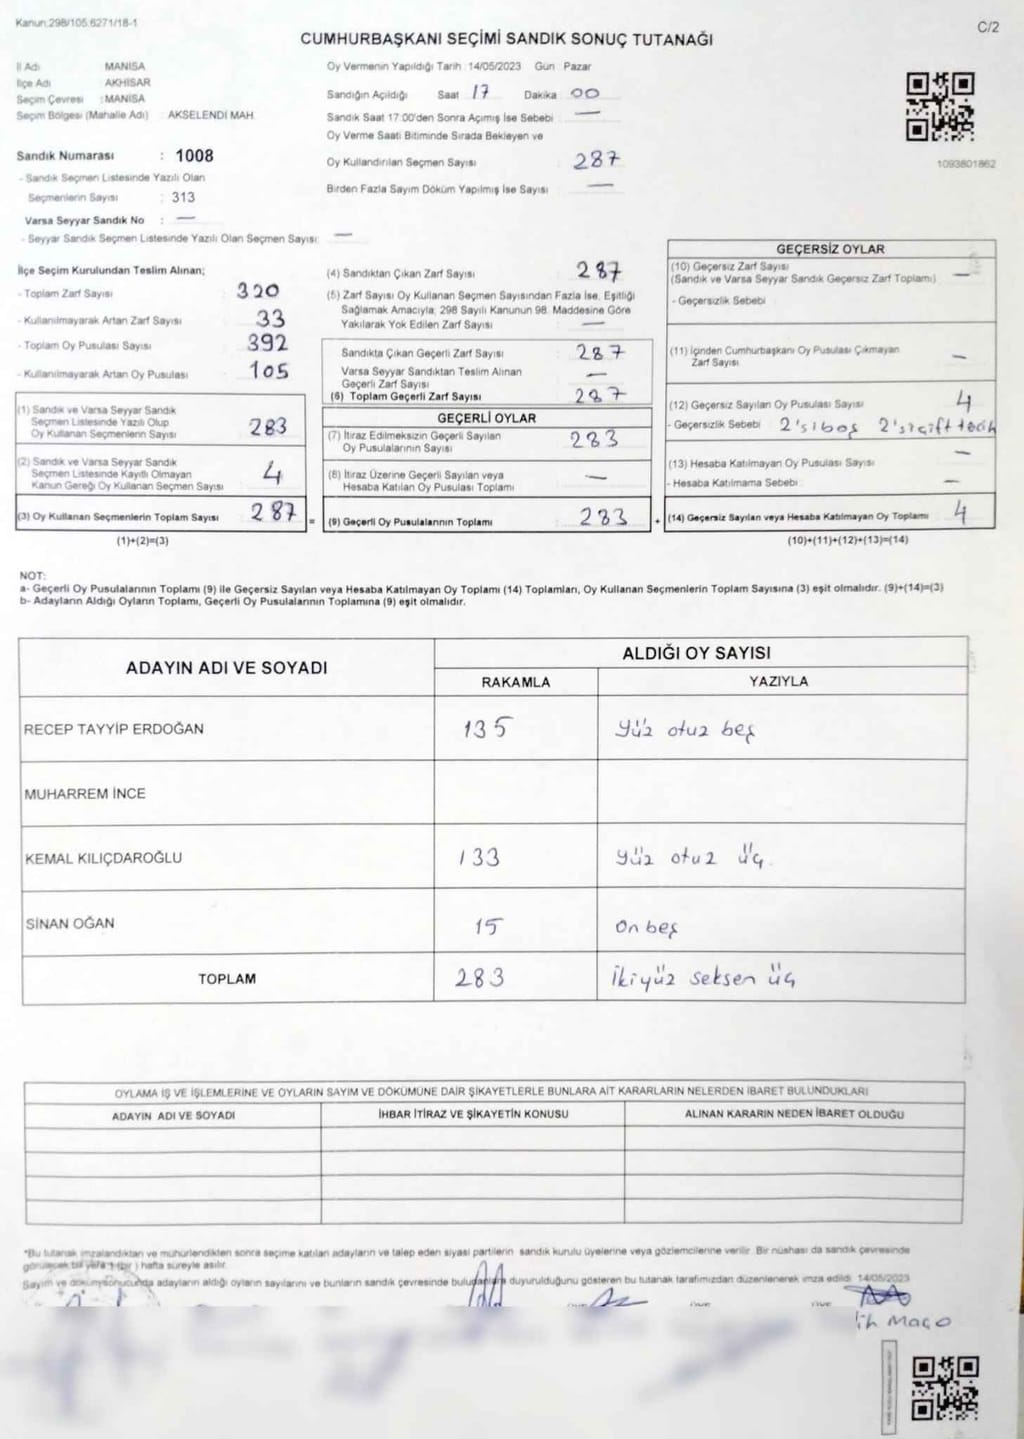 Kanun:298/105,6271/18-1
C/2
CUMHURBAŞKANI SEÇİMİ SANDIK SONUÇ TUTANAĞI
İl Adı MANİSA
İlçe Adı AKHİSAR
Seçim Çevresi : MANİSA
Seçim Bölgesi (Mahalle Adı) : AKSELENDİ MAH.
Sandık Numarası : 1008
- Sandık Seçmen Listesinde Yazılı Olan
Seçmenlerin Sayısı : 313
Varsa Seyyar Sandık No : —
- Seyyar Sandık Seçmen Listesinde Yazılı Olan Seçmen Sayısı: —
Oy Vermenin Yapıldığı Tarih : 14/05/2023 Gün : Pazar
Sandığın Açıldığı Saat 17 Dakika 00
Sandık Saat 17:00'den Sonra Açımış İse Sebebi : —
Oy Verme Saati Bitiminde Sırada Bekleyen ve
Oy Kullandırılan Seçmen Sayısı : 287
Birden Fazla Sayım Döküm Yapılmış İse Sayısı : —
1093801862
İlçe Seçim Kurulundan Teslim Alınan;
- Toplam Zarf Sayısı 320
- Kullanılmayarak Artan Zarf Sayısı 33
- Toplam Oy Pusulası Sayısı 392
- Kullanılmayarak Artan Oy Pusulası 105
(1) Sandık ve Varsa Seyyar Sandık
Seçmen Listesinde Yazılı Olup
Oy Kullanan Seçmenlerin Sayısı 283
(2) Sandık ve Varsa Seyyar Sandık
Seçmen Listesinde Kayıtlı Olmayan
Kanun Gereği Oy Kullanan Seçmen Sayısı 4
(3) Oy Kullanan Seçmenlerin Toplam Sayısı 287 =
(1)+(2)=(3)
(4) Sandıktan Çıkan Zarf Sayısı 287
(5) Zarf Sayısı Oy Kullanan Seçmen Sayısından Fazla İse, Eşitliği
Sağlamak Amacıyla, 298 Sayılı Kanunun 98. Maddesine Göre
Yakılarak Yok Edilen Zarf Sayısı —
Sandıkta Çıkan Geçerli Zarf Sayısı 287
Varsa Seyyar Sandıktan Teslim Alınan
Geçerli Zarf Sayısı —
(6) Toplam Geçerli Zarf Sayısı 287
GEÇERLİ OYLAR
(7) İtiraz Edilmeksizin Geçerli Sayılan
Oy Pusulalarının Sayısı 283
(8) İtiraz Üzerine Geçerli Sayılan veya
Hesaba Katılan Oy Pusulası Toplamı —
(9) Geçerli Oy Pusulalarının Toplamı 283 +
GEÇERSİZ OYLAR
(10) Geçersiz Zarf Sayısı
(Sandık ve Varsa Seyyar Sandık Geçersiz Zarf Toplamı) —
- Geçersizlik Sebebi
(11) İçinden Cumhurbaşkanı Oy Pusulası Çıkmayan
Zarf Sayısı —
(12) Geçersiz Sayılan Oy Pusulası Sayısı 4
- Geçersizlik Sebebi 2'si boş 2'si çift tercih
(13) Hesaba Katılmayan Oy Pusulası Sayısı —
- Hesaba Katılmama Sebebi —
(14) Geçersiz Sayılan veya Hesaba Katılmayan Oy Toplamı 4
(10)+(11)+(12)+(13)=(14)
NOT:
a- Geçerli Oy Pusulalarının Toplamı (9) ile Geçersiz Sayılan veya Hesaba Katılmayan Oy Toplamı (14) Toplamları, Oy Kullanan Seçmenlerin Toplam Sayısına (3) eşit olmalıdır. (9)+(14)=(3)
b- Adayların Aldığı Oyların Toplamı, Geçerli Oy Pusulalarının Toplamına (9) eşit olmalıdır.
ADAYIN ADI VE SOYADI
ALDIĞI OY SAYISI
RAKAMLA YAZIYLA
RECEP TAYYİP ERDOĞAN 135 Yüz otuz beş
MUHARREM İNCE
KEMAL KILIÇDAROĞLU 133 Yüz otuz üç
SİNAN OĞAN 15 On beş
TOPLAM 283 İkiyüz seksen üç
OYLAMA İŞ VE İŞLEMLERİNE VE OYLARIN SAYIM VE DÖKÜMÜNE DAİR ŞİKAYETLERLE BUNLARA AİT KARARLARIN NELERDEN İBARET BULUNDUKLARI
ADAYIN ADI VE SOYADI İHBAR İTİRAZ VE ŞİKAYETİN KONUSU ALINAN KARARIN NEDEN İBARET OLDUĞU
*Bu tutanak imzalandıktan ve mühürlendikten sonra seçime katılan adayların ve talep eden siyasi partilerin sandık kurulu üyelerine veya gözlemcilerine verilir. Bir nüshası da sandık çevresinde
görülecek bir yere 1 (bir) hafta süreyle asılır.
Sayım ve döküm sonucunda adayların aldığı oyların sayılarını ve bunların sandık çevresinde bulunanlara duyurulduğunu gösteren bu tutanak tarafımızdan düzenlenerek imza edildi. 14/05/2023